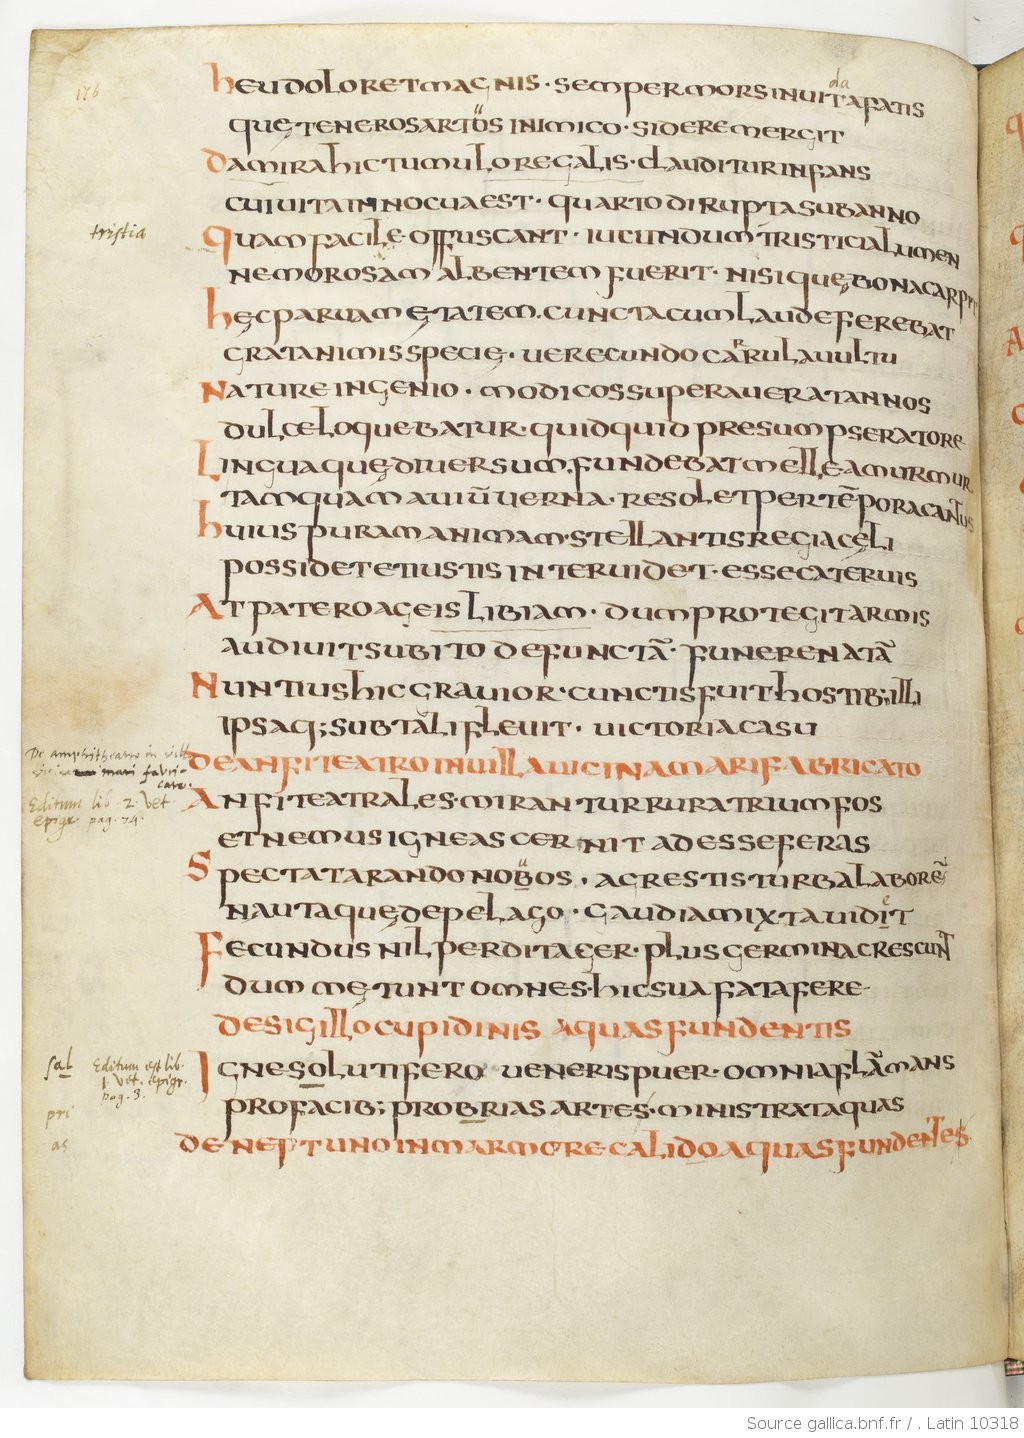 176
heu dolor et magnis · semper mors inuitafatis
da
quę teneros artus inimico · sidere mergit
damira hic tumulo regalis · clauditur infans
cui uita innocua est · quarto dirupta sub anno
tristia
quam facile offuscant · iucundum tristicia lumen
nemo rosam albentem fuerit · nisi quę bona carp
hęc paruam ętatem · cuncta cum laude ferebat
grata nimis specię · uerecundo carrula uultu
nature ingenio · modicos superauerat annos
dulce loquebatur · quidquid presumpserat ore
linguaquę diuersum · fundebat melle a murmur
tamquam auiū uerna · resolet per tēpora cantus
huius puram animam · stellantis regia cęli
possidet et iustis inter uidet · esse cateruis
at pater oageis libiam · dum protegit armis
audiuit subito defunctā · funere natā
nuntius hic grauior · cunctis fuit hostib; illi
ipsaq; sub tali fleuit · uictoria casu
De amphitheatro in vill
mari fabri-
cato.
de anfiteatro in uilla uicina mari fabricato
Editum lib. 2. Vet
epigr. pag. 74.
anfiteatrales · mirantur rura triumfos
et nemus igneas cernit adesse feras
spectat arando nobos · agrestis turba laborē
nautaquę de pelago · gaudia mixta uidit
fecundus nil perdit ager · plus germina crescunt
dum mętunt omnes · hic sua fata fere
de sigillo cupidinis aquas fundentis
sal
Editum est lib.
1. Vet. epigr.
pag. 3.
igne solutifero ueneris puer · omnia flāmans
pro facib; probrias artes · ministrat aquas
pri
as
de neptuno in marmore calido aquas fundentes
Source gallica.bnf.fr / . Latin 10318